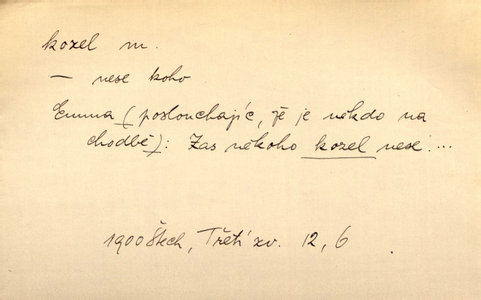 kozel m.
— nese koho
Emma (poslouchajíc, že je někdo na
chodbě): Zas někoho kozel nese!...
1900 Štech, Třetí zv. 12, 6